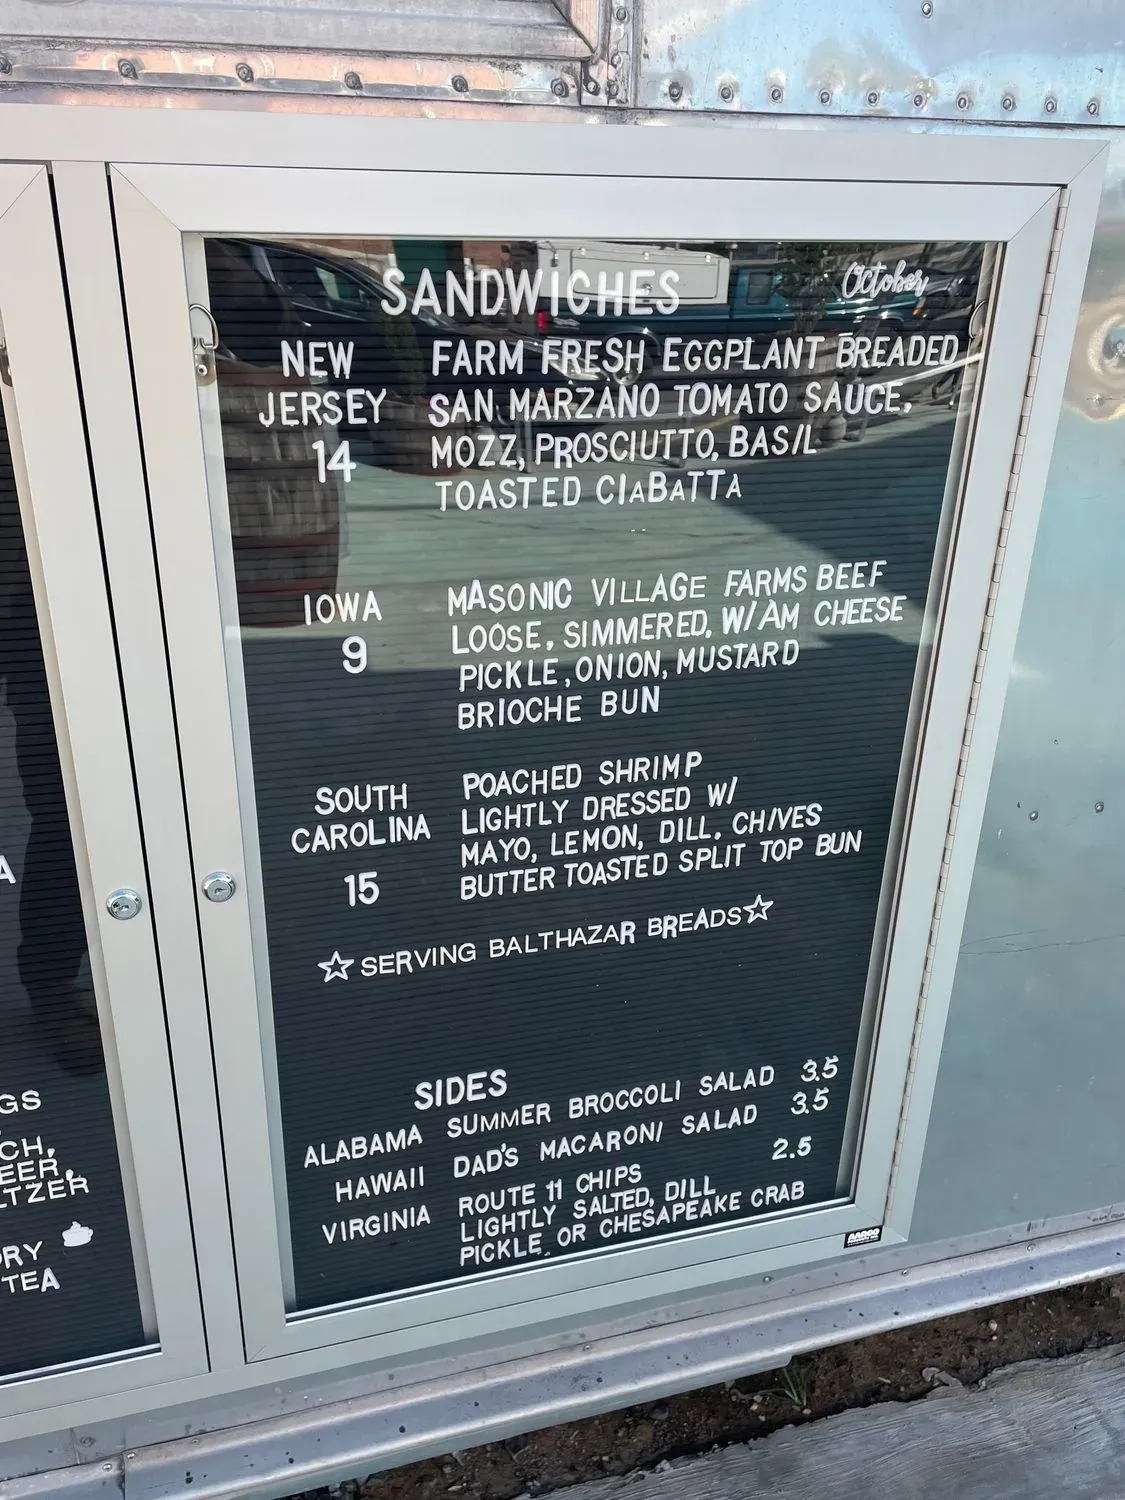 SANDWICHES
October
NEW JERSEY 14
FARM FRESH EGGPLANT BREADED
SAN MARZANO TOMATO SAUCE,
MOZZ, PROSCIUTTO, BASIL
TOASTED CIABATTA
IOWA 9
MASONIC VILLAGE FARMS BEEF
LOOSE, SIMMERED, W/AM CHEESE
PICKLE, ONION, MUSTARD
BRIOCHE BUN
SOUTH CAROLINA 15
POACHED SHRIMP
LIGHTLY DRESSED W/
MAYO, LEMON, DILL, CHIVES
BUTTER TOASTED SPLIT TOP BUN
☆ SERVING BALTHAZAR BREADS ☆
SIDES
ALABAMA SUMMER BROCCOLI SALAD 3.5
HAWAII DAD'S MACARONI SALAD 3.5
VIRGINIA ROUTE 11 CHIPS 2.5
LIGHTLY SALTED, DILL
PICKLE OR CHESAPEAKE CRAB
AARCO
A
GS
CH,
EER,
LTZER
ORY
TEA